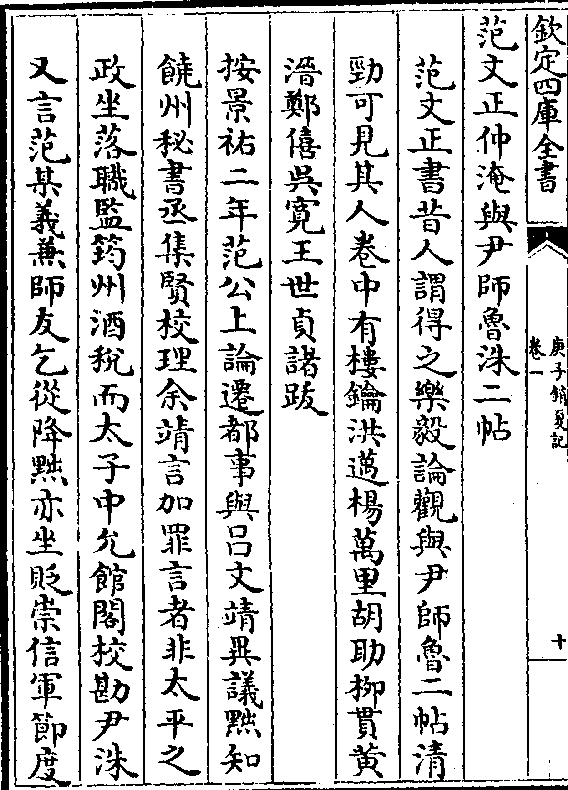 欽定四庫全書
庚子銷夏記
卷一
十
范文正仲淹與尹師魯洙二帖
范文正書昔人謂得之樂毅論觀與尹師魯二帖清
勁可見其人卷中有樓鑰洪邁楊萬里胡助柳貫黄
溍鄭僖吳寛王世貞諸跋
按景祐二年范公上論遷都事與吕文靖異議黜知
饒州秘書丞集賢校理余靖言加罪言者非太平之
政坐落職監筠州酒稅而太子中允館閣校勘尹洙
又言范某義兼師友乞從降黜亦坐貶崇信軍節度